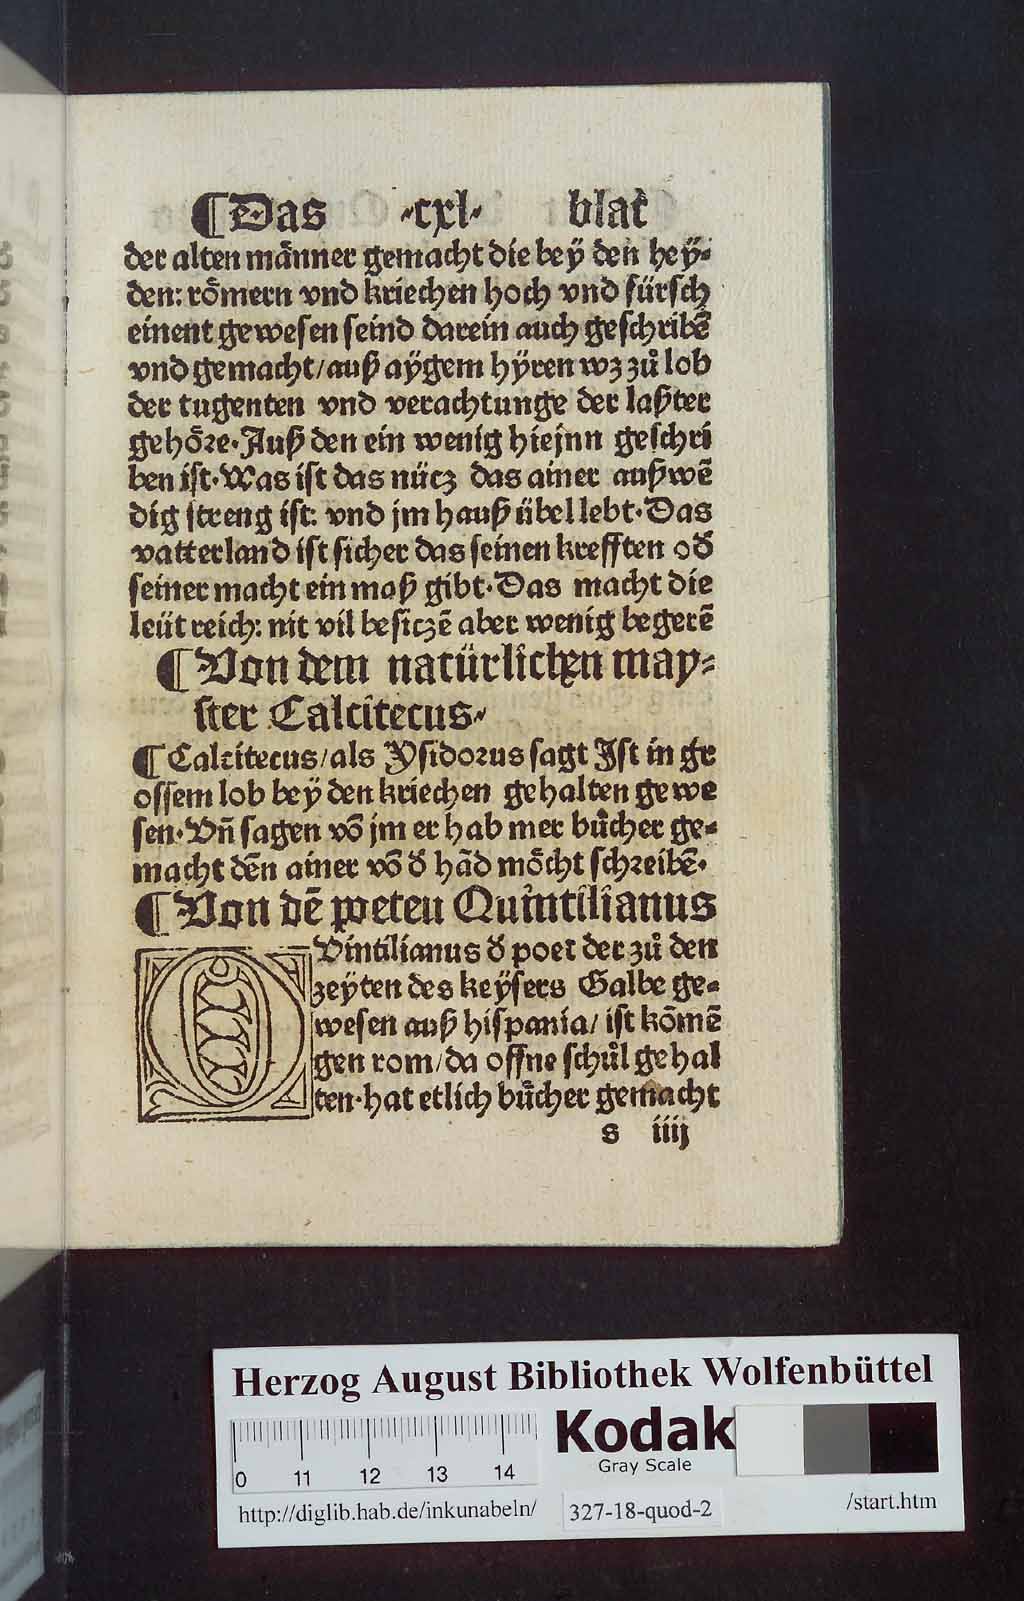 ¶ Das ·cxl· blat
der alten männer gemacht die bey̋ den hey̋⸗
den: rȫmern vnd kriechen hoch vnd fürsch
einent gewesen seind darein auch geschribē
vnd gemacht/auß ay̋gem hy̋ren wz zů lob
der tugenten vnd verachtunge der laßter
gehȫꝛe·Auß den ein wenig hiejnn geschri
ben ist·Was ist das nücz das ainer außwē
dig streng ist: vnd jm hauß übel lebt·Das
vatterland ist sicher das seinen krefften od̄
seiner macht ein maß gibt·Das macht die
leüt reich: nit vil besiczē aber wenig begerē
¶ Von dem natürlichen may⸗
ster Calcitecus·
¶ Calcitecus/als Ysidoꝛus sagt Ist in gr
ossem lob bey̋ den kriechen gehalten gewe
sen·Vn̄ sagen vō jm er hab mer bůcher ge⸗
macht dēn ainer vō d̄ hād möcht schꝛeibē·
¶ Von dē poeten Quintilianus
QVintilianus d̄ poet der zů den
zey̋ten des key̋sers Galbe ge⸗
wesen auß hispania/ ist kōmē
gen rom/da offne schůl gehal
ten·hat etlich bůcher gemacht
s iiij
Herzog August Bibliothek Wolfenbüttel
0 11 12 13 14
Kodak
Gray Scale
http://diglib.hab.de/inkunabeln/ 327-18-quod-2 /start.htm